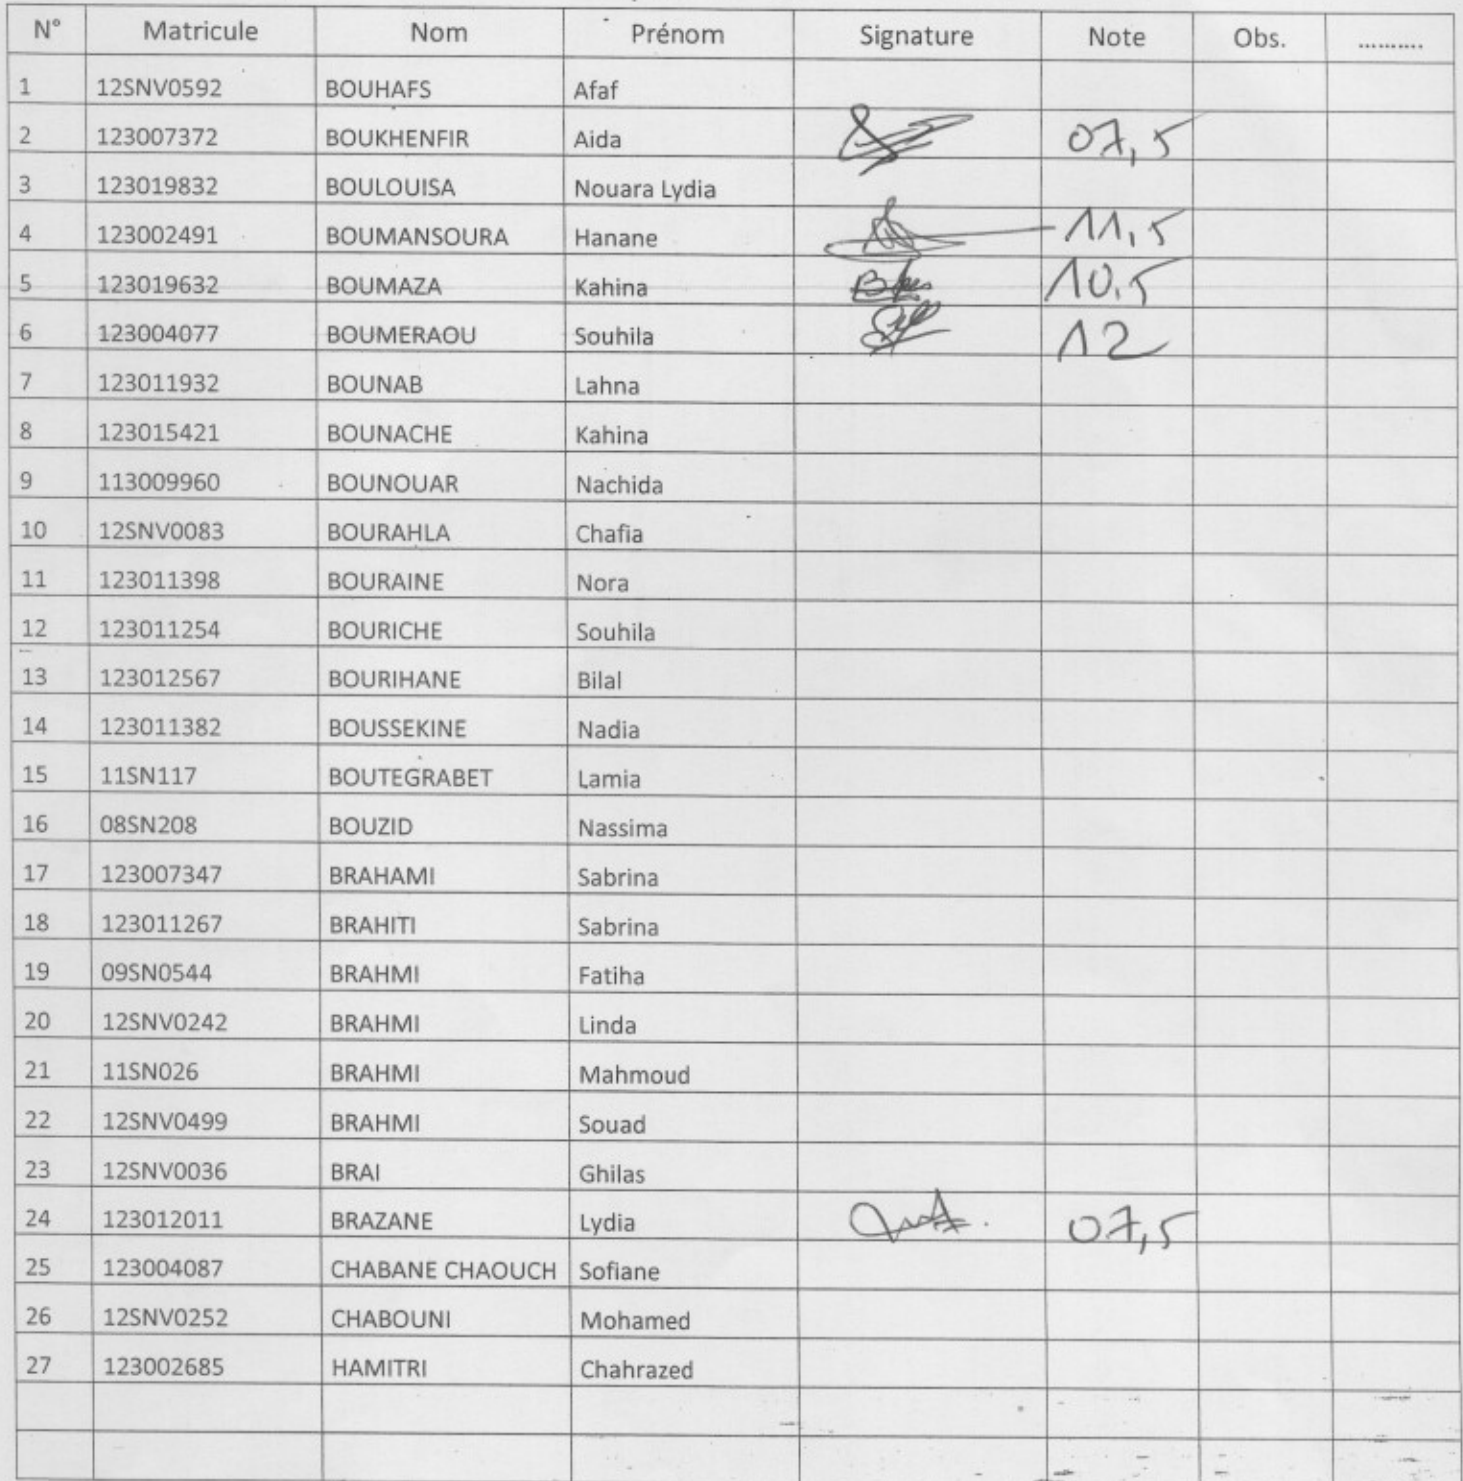 N° Matricule Nom Prénom Signature Note Obs. ..........
1 12SNV0592 BOUHAFS Afaf
2 123007372 BOUKHENFIR Aida 07,5
3 123019832 BOULOUISA Nouara Lydia
4 123002491 BOUMANSOURA Hanane 11,5
5 123019632 BOUMAZA Kahina 10,5
6 123004077 BOUMERAOU Souhila 12
7 123011932 BOUNAB Lahna
8 123015421 BOUNACHE Kahina
9 113009960 BOUNOUAR Nachida
10 12SNV0083 BOURAHLA Chafia
11 123011398 BOURAINE Nora
12 123011254 BOURICHE Souhila
13 123012567 BOURIHANE Bilal
14 123011382 BOUSSEKINE Nadia
15 11SN117 BOUTEGRABET Lamia
16 08SN208 BOUZID Nassima
17 123007347 BRAHAMI Sabrina
18 123011267 BRAHITI Sabrina
19 09SN0544 BRAHMI Fatiha
20 12SNV0242 BRAHMI Linda
21 11SN026 BRAHMI Mahmoud
22 12SNV0499 BRAHMI Souad
23 12SNV0036 BRAI Ghilas
24 123012011 BRAZANE Lydia 07,5
25 123004087 CHABANE CHAOUCH Sofiane
26 12SNV0252 CHABOUNI Mohamed
27 123002685 HAMITRI Chahrazed